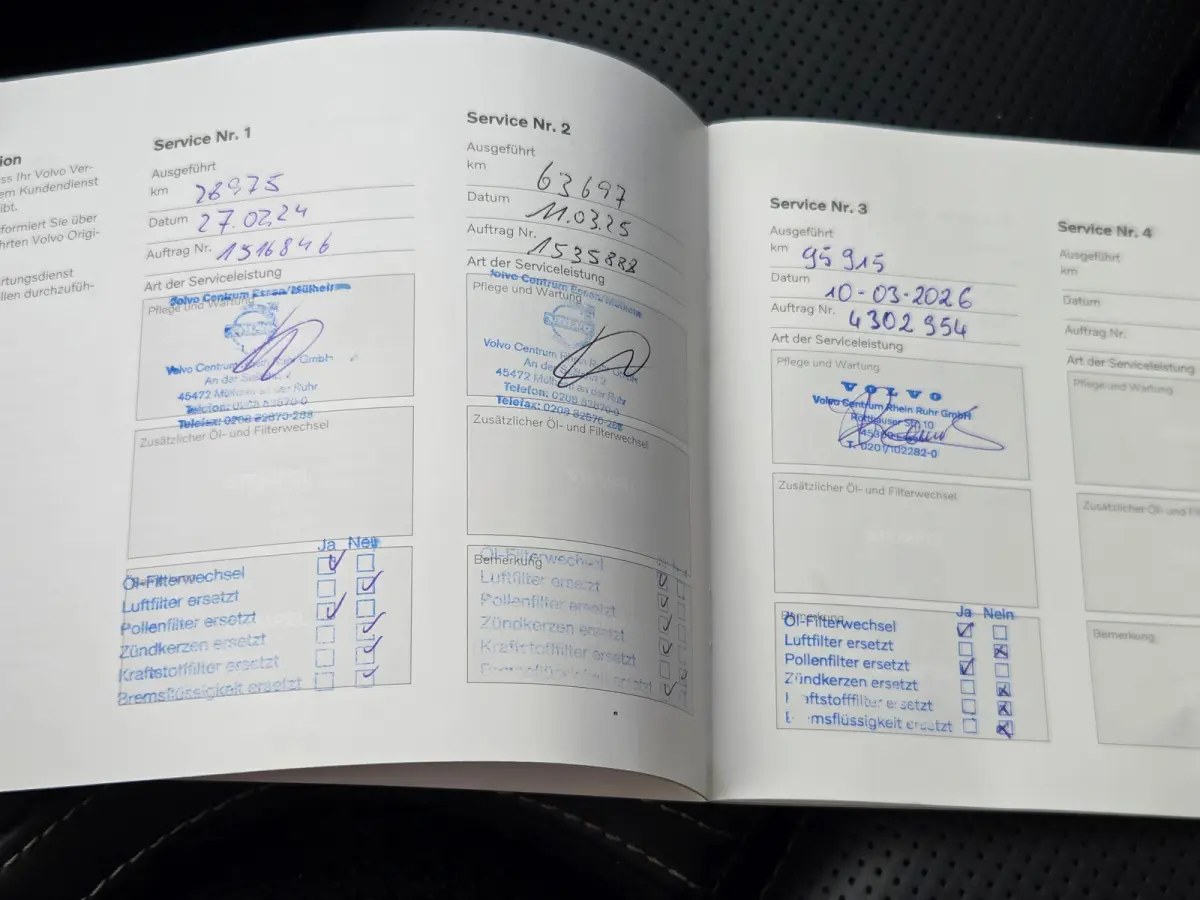 ion
ss Ihr Volvo Ver-
em Kundendienst
ibt.
formiert Sie über
hrten Volvo Origi-
rtungsdienst
llen durchzufüh-
Service Nr. 1
Ausgeführt
km 28975
Datum 27.02.24
Auftrag Nr. 1516846
Art der Serviceleistung
Pflege und Wartung
Volvo Centrum Essen/Mülheim
Volvo Centrum Rhein Ruhr GmbH
An der 2
45472 Mülheim an der Ruhr
Telefon: 0208 82870-0
Telefax: 0208 82870-288
Zusätzlicher Öl- und Filterwechsel
Ja Nein
Öl-Filterwechsel
Luftfilter ersetzt
Pollenfilter ersetzt
Zündkerzen ersetzt
Kraftstoffilter ersetzt
Bremsflüssigkeit ersetzt
Service Nr. 2
Ausgeführt
km 63697
Datum 11.03.25
Auftrag Nr. 1535888
Art der Serviceleistung
Pflege und Wartung
Volvo Centrum Essen/Mülheim
Volvo Centrum Rhein Ruhr GmbH
An der 2
45472 Mülheim an der Ruhr
Telefon: 0208 82870-0
Telefax: 0208 82870-288
Zusätzlicher Öl- und Filterwechsel
Bemerkung
Öl-Filterwechsel
Luftfilter ersetzt
Pollenfilter ersetzt
Zündkerzen ersetzt
Kraftstoffilter ersetzt
Bremsflüssigkeit ersetzt
Service Nr. 3
Ausgeführt
km 95915
Datum 10-03-2026
Auftrag Nr. 4302954
Art der Serviceleistung
Pflege und Wartung
VOLVO
Volvo Centrum Rhein Ruhr GmbH
Str. 10
T. 0201/102282-0
Zusätzlicher Öl- und Filterwechsel
Bemerkung
Ja Nein
Öl-Filterwechsel
Luftfilter ersetzt
Pollenfilter ersetzt
Zündkerzen ersetzt
Kraftstofffilter ersetzt
Bremsflüssigkeit ersetzt
Service Nr. 4
Ausgeführt
km
Datum
Auftrag Nr.
Art der Serviceleistung
Pflege und Wartung
Zusätzlicher Öl- und Fil
Bemerkung